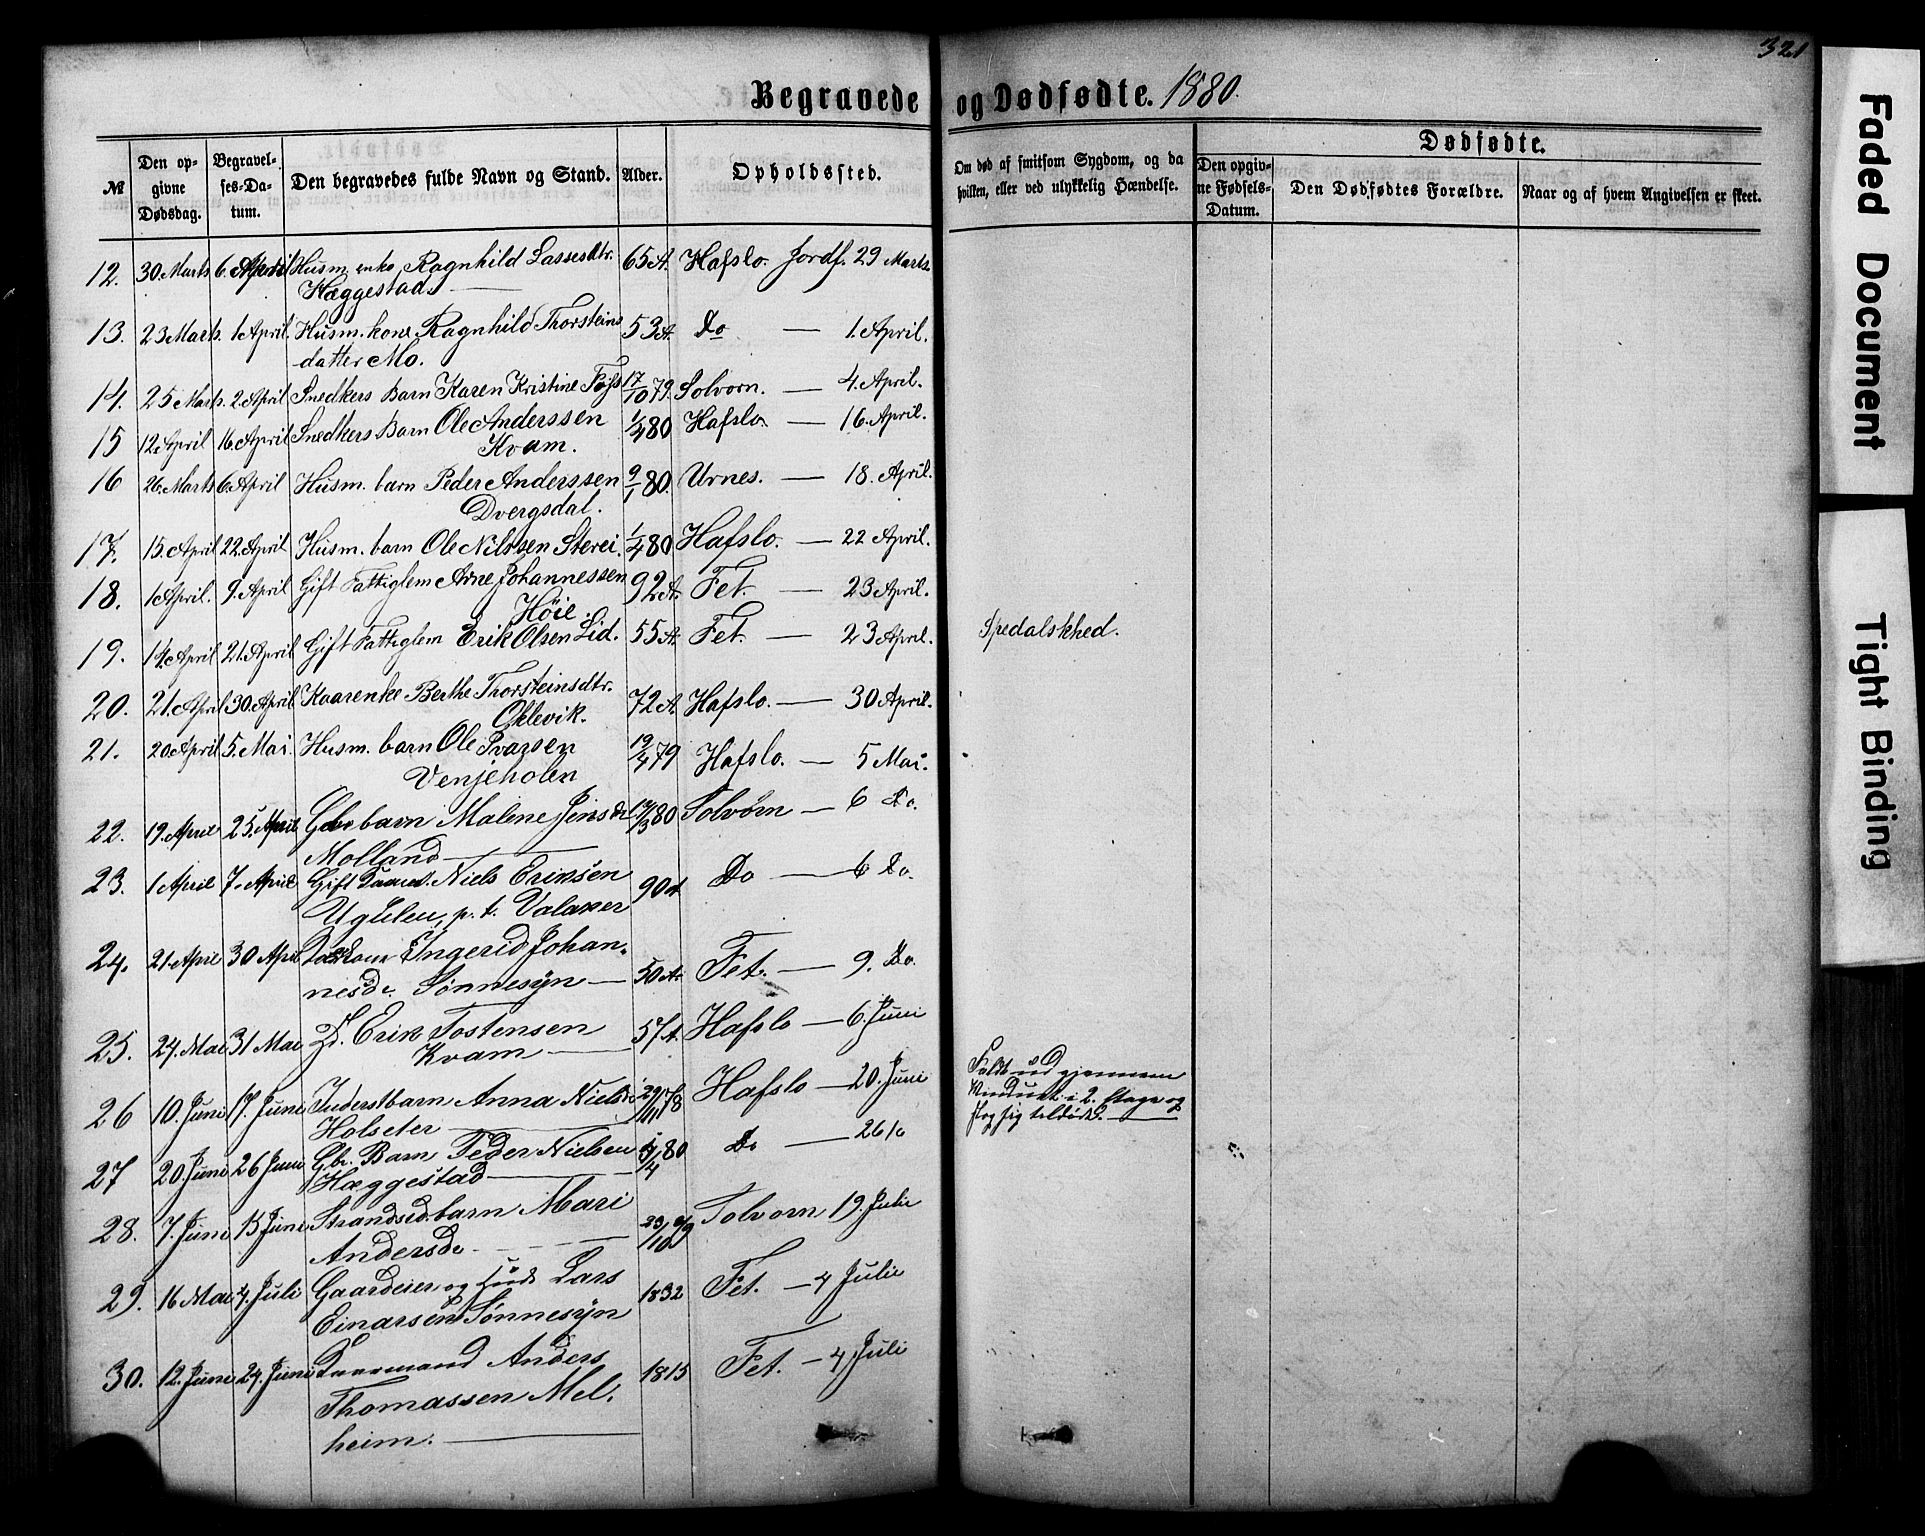 321
Begravede og Dødfødte. 1880.
№ Den op- Begravel- Den begravedes fulde Navn og Stand. Alder. Opholdssted. Om død af smitsom Sygdom, og da Dødfødte.
givne ses-Da- hvilken, eller ved ulykkelig Hændelse. Den opgiv- Den Dødfødtes Forældre. Naar og af hvem Angivelsen er skeet.
Dødsdag. tum. ne Fødsels-
Datum.
12. 30 Marts 6. April Husm. enke Ragnhild Lassesdtr. 65 A. Hafslo. Jordf. 29 Marts.
Hæggestad.
13. 23 Marts. 1 April. Husm. kone Ragnhild Thorsteins 53 A. Do — 1. April.
datter Mo.
14. 25 Marts. 2. April Snedkers Barn Karen Kristine 17/10 79. Solvorn. — 4. April.
15 12 April 16. April Snedkers Barn Ole Anderssen 1/4 80 Hafslo. — 16. April.
Kvam.
16 26. Marts 6 April Husm. barn Peder Anderssen 9/1 80. Urnes. — 18. April.
Dvergsdal.
17. 15. April 22. April Husm. barn Ole Nilssen Sterei. 1/4 80 Hafslo. — 22 April.
18. 1 April. 9. April Gift Fattiglem Arne Johannessen 92 A. Fet. — 23 April.
Höie.
19. 14. April 21. April Gift Fattiglem Erik Olsen Lid. 55 A. Fet. — 23 April. Spedalskhed.
20. 21. April 30. April Kaarenke Berthe Thorsteinsdtr. 72 A. Hafslo. — 30 April.
Oklevik.
21. 20 April 5. Mai. Husm. barn Ole Ivarsen 19/4 79 Hafslo. — 5 Mai.
Venjeholen
22. 19. April 25. April Gbr barn Malene Jensdr 12/3 80 Solvorn — 6 Do.
Molland —
23. 1 April 7. April Gift Niels Eriksen 90 A. Do — 6 Do.
p. t. Valaker
24. 21. April 30 April Ingerid Johan- 50 A. Fet. — 9. Do.
nesdr. Sönnesyn —
25. 24. Mai 31 Mai Erik Tostensen 57 A. Hafslo — 6. Juni
Kvam —
26 10. Juni 17. Juni Inderstbarn Anna Nielsdr 29/11 78 Hafslo — 20. Juni Faldt ud gjennem
Vinduet i 2. Etage og
Holseter — slog sig tildöde. —
27 20. Juni 26 Juni Gbr. Barn Peder Nielsen /4 80 Do — 26 Do
Hæggestad —
28. 7. Juni 15 Juni Strandsid. barn Mari 23/10 79 Solvorn 19. Julie
Andersdr —
29. 16 Mai 4. Juli Gaardeier og Lars 1832 Fet. — 4 Julie
Einarsen Sönnesyn
30. 12. Juni 24. Juni Kaarmand Anders 1815 Fet. — 4 Juli
Thomassen Mel-
heim. —
Faded Document
Tight Binding